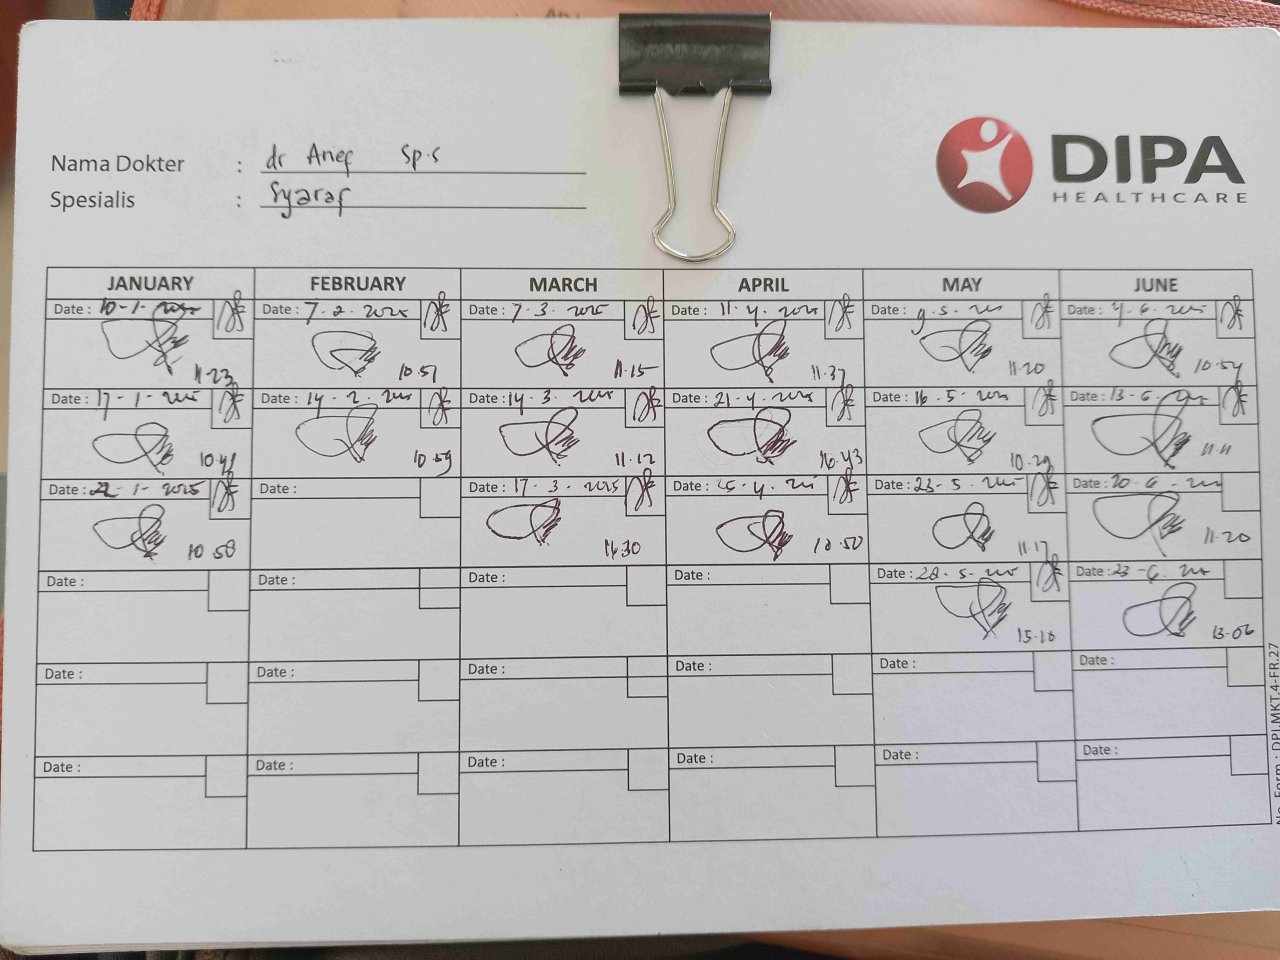 Nama Dokter : dr Anef Sp.s
Spesialis : Syaraf
DIPA
HEALTHCARE
JANUARY FEBRUARY MARCH APRIL MAY JUNE
Date : 10-1-2025 Date : 7.2.2025 Date : 7.3.2025 Date : 11.4.2025 Date : 9.5.2025 Date : 4.6.2025
11.23 10.51 11.15 11.37 11.20 10.54
Date : 17-1-2025 Date : 14.2.2025 Date : 14.3.2025 Date : 21.4.2025 Date : 16.5.2025 Date : 13-6.2025
10.41 10.59 11.12 16.43 10.29 11.11
Date : 22-1-2025 Date : Date : 17.3.2025 Date : 25.4.2025 Date : 23.5.2025 Date : 20-6-2025
10.58 11.30 10.50 11.17 11.20
Date : Date : Date : Date : Date : 28.5.2025 Date : 23-6.2025
15.10 13.06
Date : Date : Date : Date : Date : Date :
Date : Date : Date : Date : Date : Date :
No. Form : DPI.MKT.4-FR.27